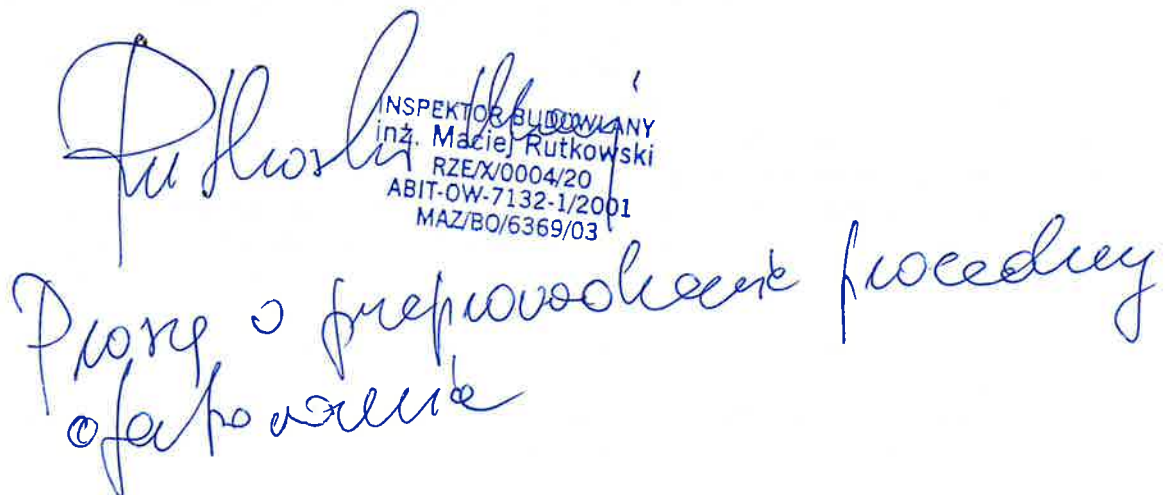 Rutkowski Maciej
INSPEKTOR BUDOWLANY
inż. Maciej Rutkowski
RZE/X/0004/20
ABIT-OW-7132-1/2001
MAZ/BO/6369/03
Proszę o przeprowadzenie procedury
ofertowania